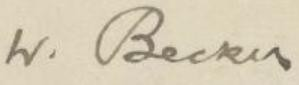 W. Becker